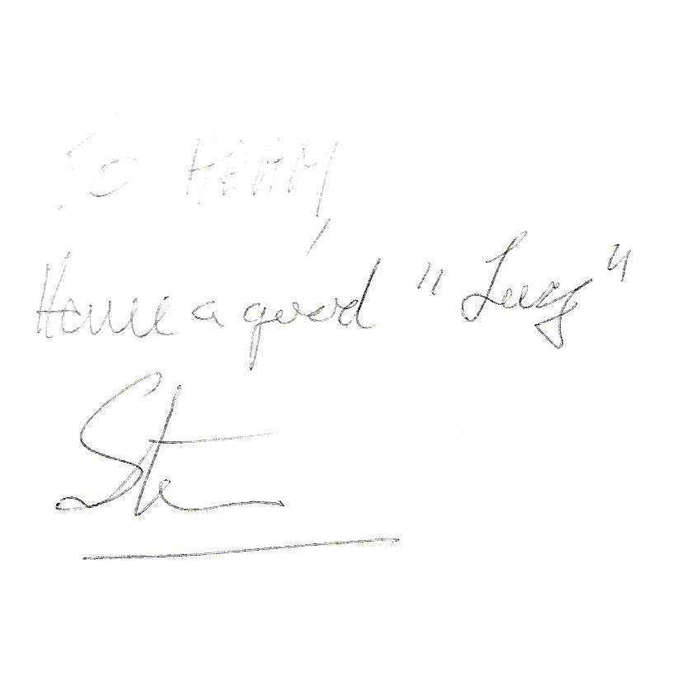 To
Have a good "Lucy"
Ste